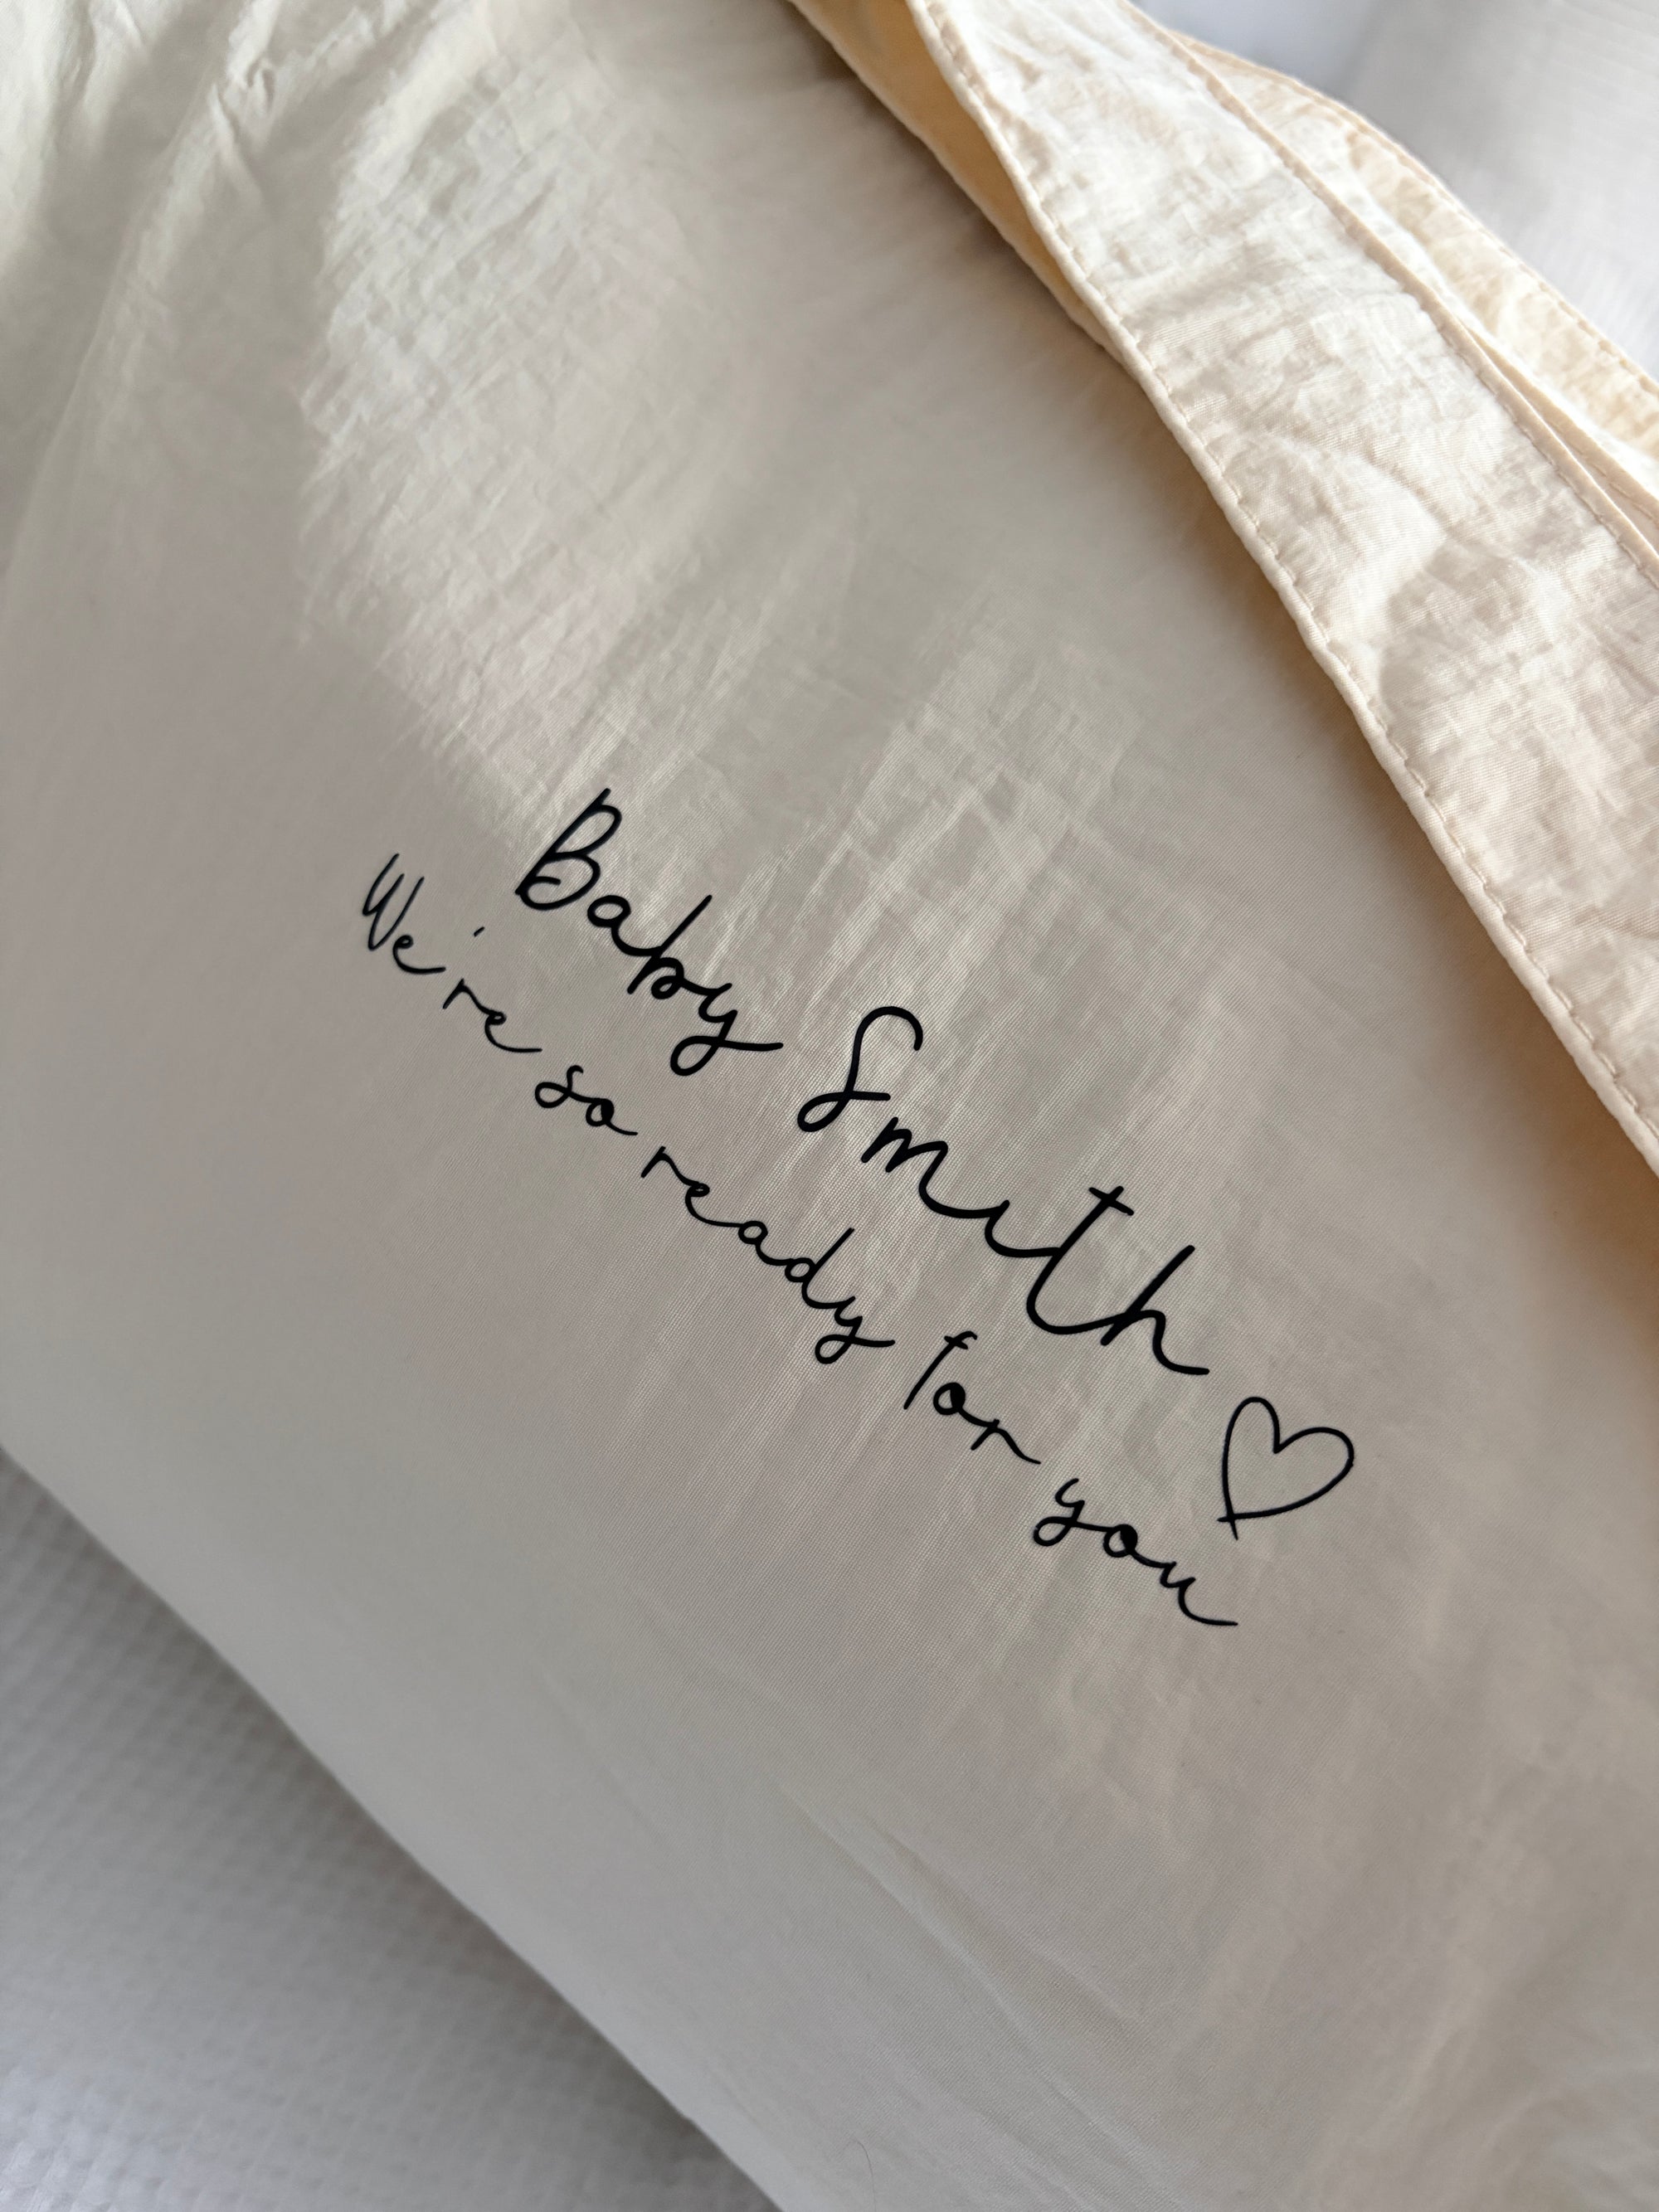 Baby Smith ♡
We're so ready for you